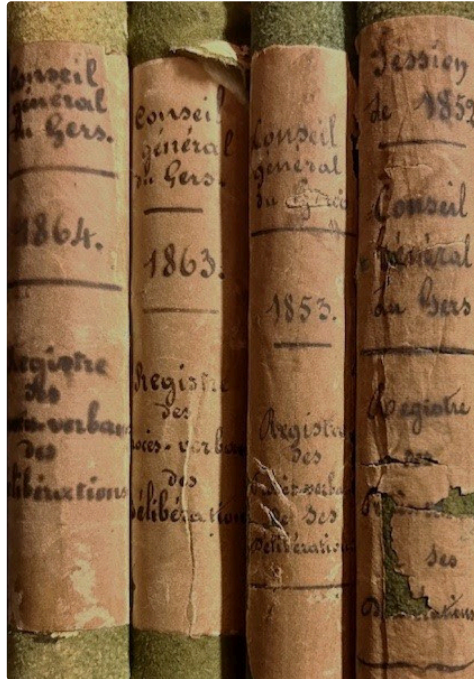 Conseil
général
du Gers.
1864.
Registre
des
procès-verbaux
des
délibérations
Conseil
général
du Gers.
1863.
Registre
des
procès-verbaux
des
délibérations
Conseil
général
du Gers
1853.
Registre
des
procès-verbaux
de ses
délibérations
Session
de 1852
Conseil
général
du Gers
Registre
des
ses